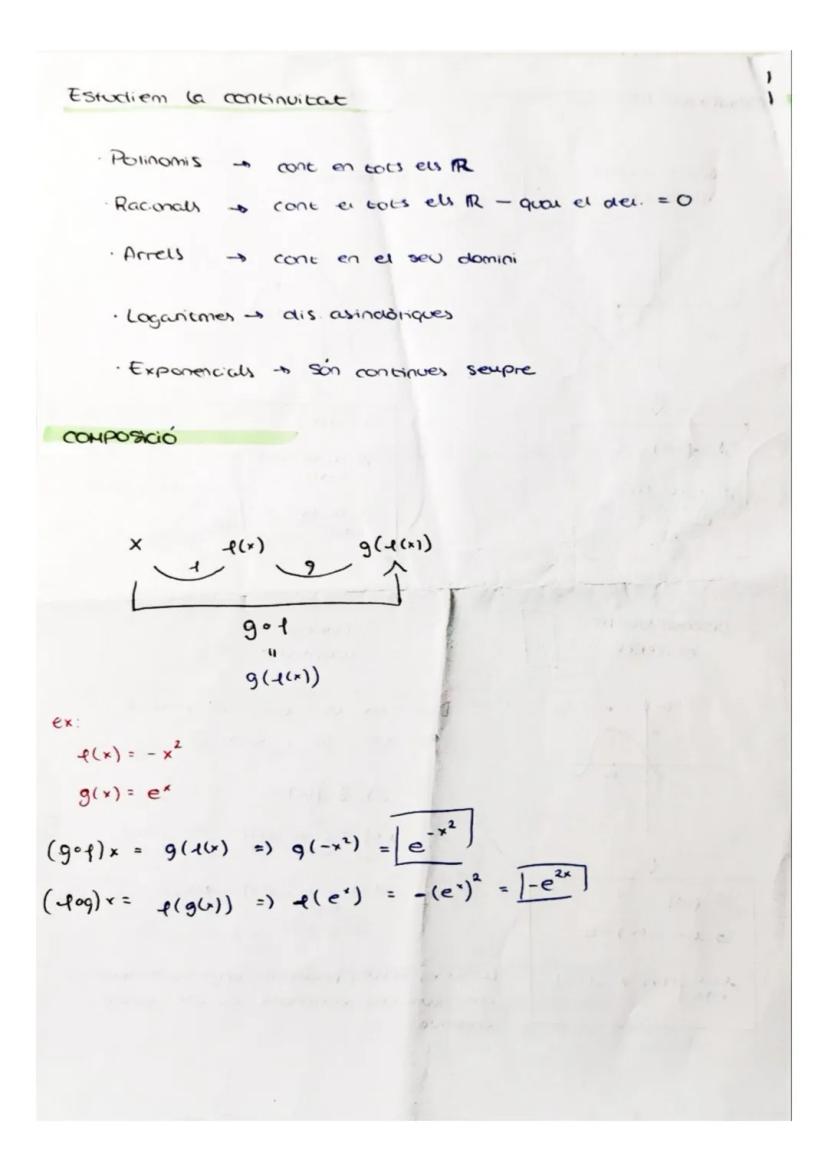 Estudiem la continuitat
· Polinomis → cont en tots els ℝ
· Racionals → cont en tots els ℝ - quan el den. = 0
· Arrels → cont en el seu domini
· Logaritmes → dis. asimptòtiques
· Exponencials → són continues sempre
COMPOSICIÓ
x f(x) g(f(x))
f g
g∘f
"
g(f(x))
ex:
f(x) = -x²
g(x) = eˣ
(g∘f)x = g(f(x) => g(-x²) = e^(-x²)
(f∘g)x = f(g(x)) => f(eˣ) = -(eˣ)² = -e^(2x)